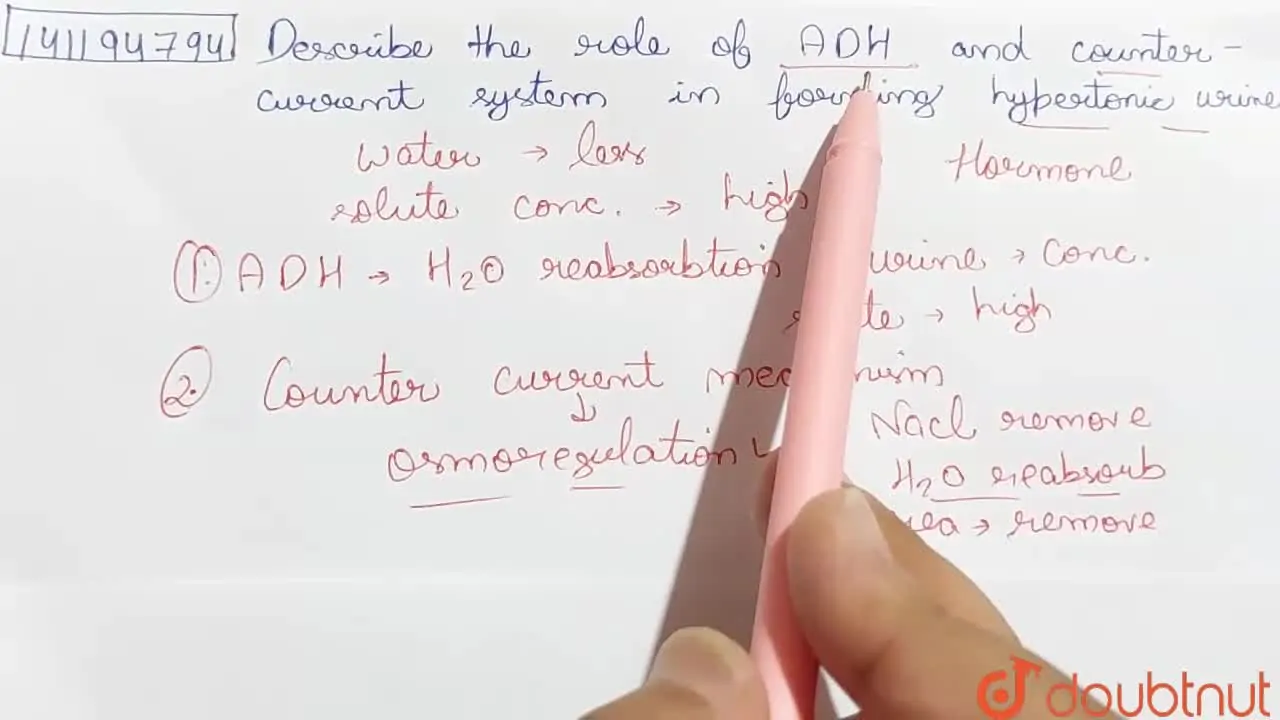 141194794 Describe the role of ADH and counter-
current system in forming hypertonic urine
Water → less
Hormone
solute conc. → high
1. ADH → H2O reabsorbtion urine → conc.
→ high
2. Counter current
osmoregulation
NaCl remove
H2O reabsorb
→ remove
doubtnut